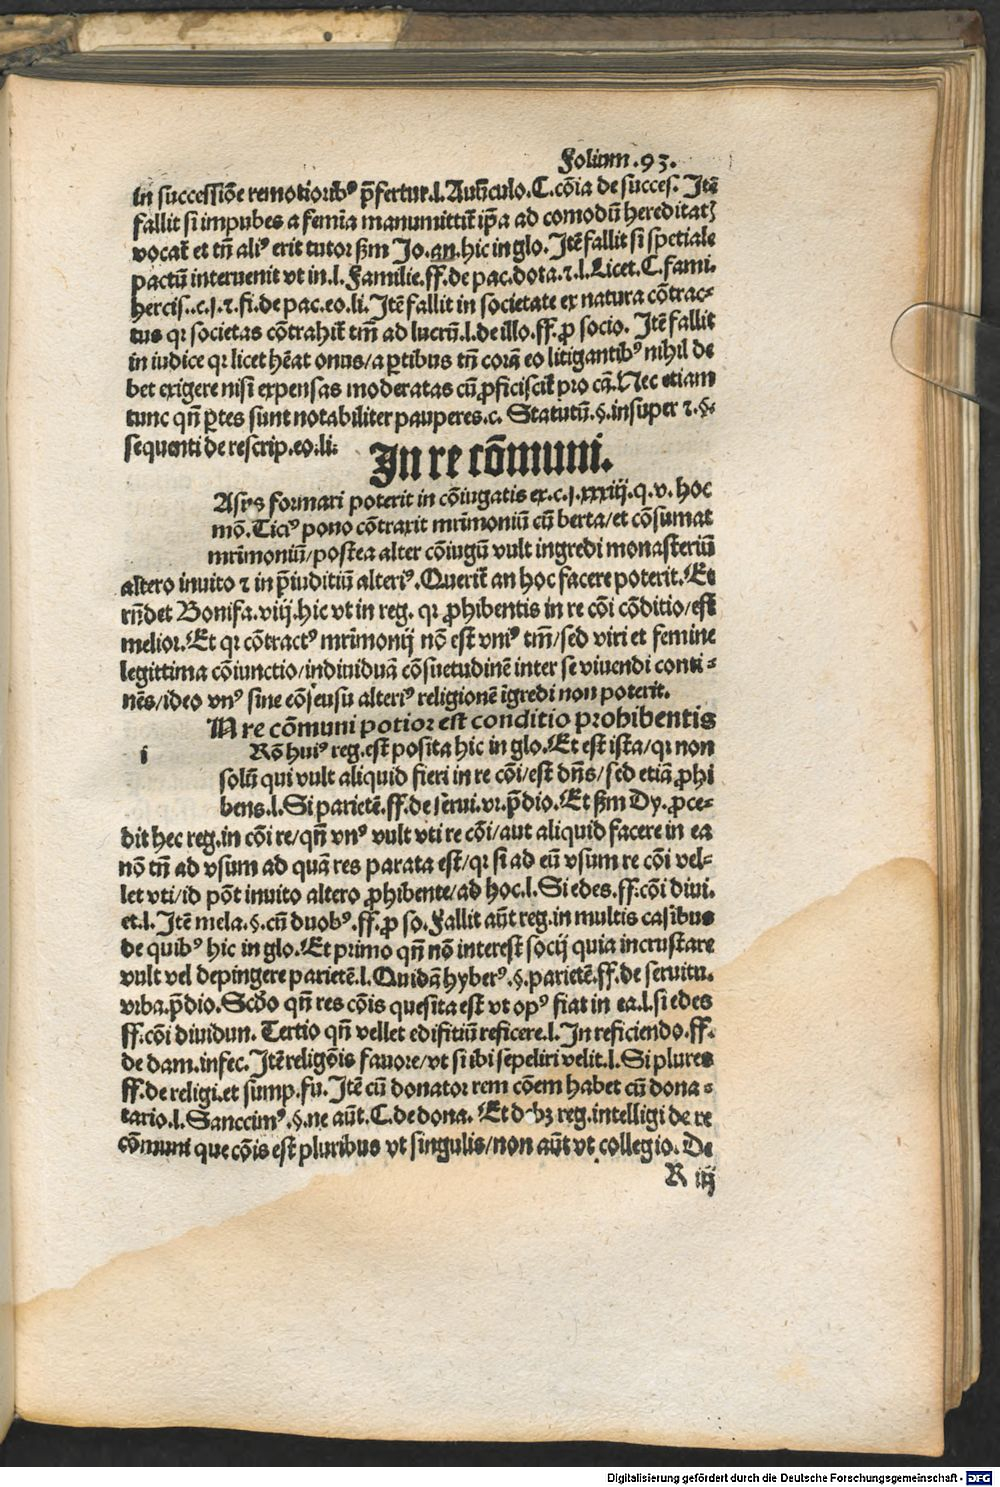 Folium .93.
in successiõe remotiorib⁹ p̃fertur.l. Auũculo. C. cõia de succes. Itẽ
fallit si impubes a femĩa manumittit̃ ip̃a ad comodũ hereditatꝫ
vocat̃ et tñ ali⁹ erit tutor ẞm Jo. an. hic in glo. Itẽ fallit si spetiale
pactũ interuenit vt in .l. Familie. ff. de pac. dota. ⁊ .l. Licet. C. fami.
hercis..c.j.⁊.fi.de pac.eo.li. Itẽ fallit in societate ex natura cõtrac⸗
tus qr societas cõtrahit̃ tm̃ ad lucrũ.l.de illo.ff.ꝓ socio. Itẽ fallit
in iudice qr licet hẽat onus/a ꝑtibus tñ corã eo litigantib⁹ nihil de
bet exigere nisi expensas moderatas cũ ꝓficiscit̃ pro cã. Nec etiam
tunc qñ ꝑtes sunt notabiliter pauperes.c. Statutũ.§.insuper ⁊.§.
sequenti de rescrip.eo.li.
In re cõmuni.
Asus formari poterit in cõiugatis ex.c.j.xxxiij.q.v. hoc
mõ. Tici⁹ pono cõtraxit mr̃imoniũ cũ berta/et cõsumat
mr̃imoniũ/postea alter cõiugũ vult ingredi monasteriũ
altero inuito ⁊ in p̃iuditiũ alteri⁹. Querit̃ an hoc facere poterit. Et
rñdet Bonifa.viij.hic vt in reg. qr ꝓhibentis in re cõi cõditio/est
melior. Et qr cõtract⁹ mr̃imonij nõ est vni⁹ tm̃/sed viri et femine
legittima cõiunctio/indiuiduã cõsuetudinẽ inter se viuendi conti⸗
nẽs/ideo vn⁹ sine cõsensu alteri⁹ religionẽ ĩgredi non poterit.
N re cõmuni potior est conditio prohibentis
i Rõ hui⁹ reg. est posita hic in glo. Et est ista/qr non
solũ qui vult aliquid fieri in re cõi/est dñs/sed etiã ꝓhi
bens.l. Si parietẽ.ff.de ser̃ui.vr.p̃dio. Et ẞm Dy. ꝓce⸗
dit hec reg. in cõi re/qñ vn⁹ vult vti re cõi/aut aliquid facere in ea
nõ tñ ad vsum ad quã res parata est/qr si ad eũ vsum re cõi vel⸗
let vti/id põt inuito altero ꝓhibente/ad hoc.l. Si edes.ff.cõi diui.
et.l. Itẽ mela.§.cũ duob⁹.ff.ꝓ so. Fallit aũt reg. in multis casibus
de quib⁹ hic in glo. Et primo qñ nõ interest socij quia incrustare
vult vel depingere parietẽ.l. Quidã hyber⁹.§.parietẽ.ff.de seruitu.
vrba.p̃dio. Scðo qñ res cõis quesita est vt op⁹ fiat in ea.l.si edes
ff.cõi diuidun. Tertio qñ vellet edifitiũ reficere.l. In reficiendo.ff.
de dam.infec. Itẽ religõis fauore/vt si ibi sepeliri velit.l. Si plures
ff.de religi.et sump.fu. Itẽ cũ donator rem cõem habet cũ dona⸗
tario.l. Sanccim⁹.§.ne aũt. C. de dona. Et dꝫ hꝫ reg. intelligi de re
cõmuni que cõis est pluribus vt singulis/non aũt vt collegio. De
R iij
Digitalisierung gefördert durch die Deutsche Forschungsgemeinschaft - DFG